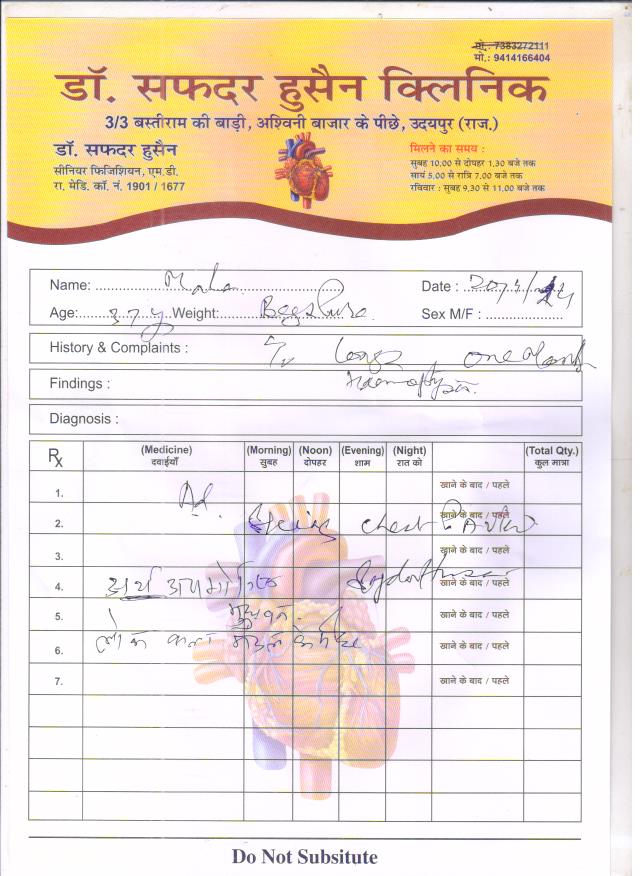 मो.: 7383272111
मो.: 9414166404
डॉ. सफदर हुसैन क्लिनिक
3/3 बस्तीराम की बाड़ी, अश्विनी बाजार के पीछे, उदयपुर (राज.)
डॉ. सफदर हुसैन
सीनियर फिजिशियन, एम.डी.
रा. मेडि. कॉ. नं. 1901 / 1677
मिलने का समय :
सुबह 10.00 से दोपहर 1.30 बजे तक
सायं 5.00 से रात्रि 7.00 बजे तक
रविवार : सुबह 9.30 से 11.00 बजे तक
Name: Date :
Age: 37 y Weight: Sex M/F :
History & Complaints : one
Findings : Haemoptysis.
Diagnosis :
Rx (Medicine) (Morning) (Noon) (Evening) (Night) (Total Qty.)
दवाईयाँ सुबह दोपहर शाम रात को कुल मात्रा
1. खाने के बाद / पहले
Ad.
2. chest खाने के बाद / पहले
3. खाने के बाद / पहले
4. अर्थ खाने के बाद / पहले
5. खाने के बाद / पहले
6. लोक कला मंडल के खाने के बाद / पहले
7. खाने के बाद / पहले
Do Not Subsitute